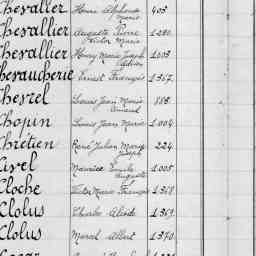 Chevalier Henri Alphonse Marie 403
Chevallier Auguste Pierre Victor Marie 1280
Chevallier Henry Marie Joseph 1003
Chesaucherie Ernest François 1367
Chesrel Louis Jean Marie 885
Chopin Louis Jean Marie 1004
Chrétien René Julien Marie Joseph 224
Civel Maurice Emile Auguste 1005
Cloche Victor Marie François 1368
Clolus Charles 1369
Clolus Marcel Albert 1370